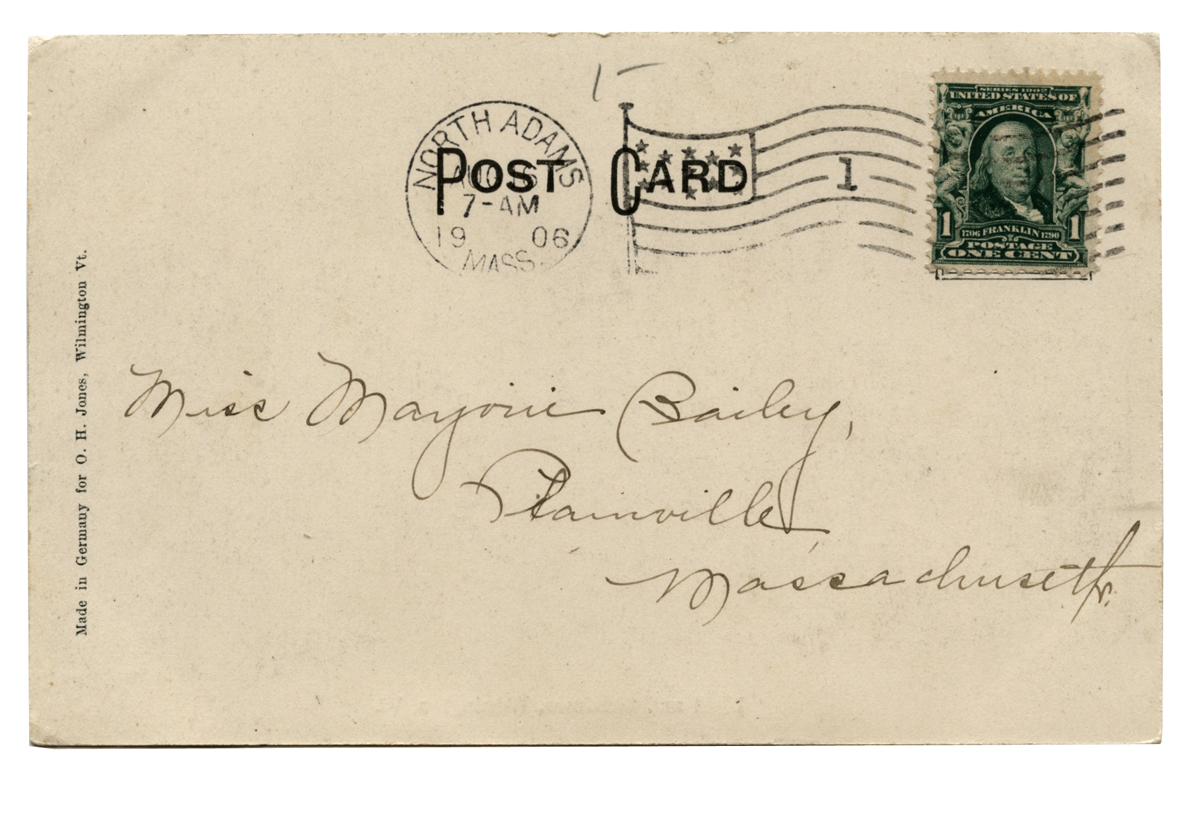 NORTH ADAMS
7-AM
19 06
MASS.
POST CARD
1
SERIES 1902
UNITED STATES OF
AMERICA
1 1706 FRANKLIN 1790 1
POSTAGE
ONE CENT
Made in Germany for O. H. Jones, Wilmington Vt.
Miss Marjorie Bailey,
Plainville
Massachusetts.